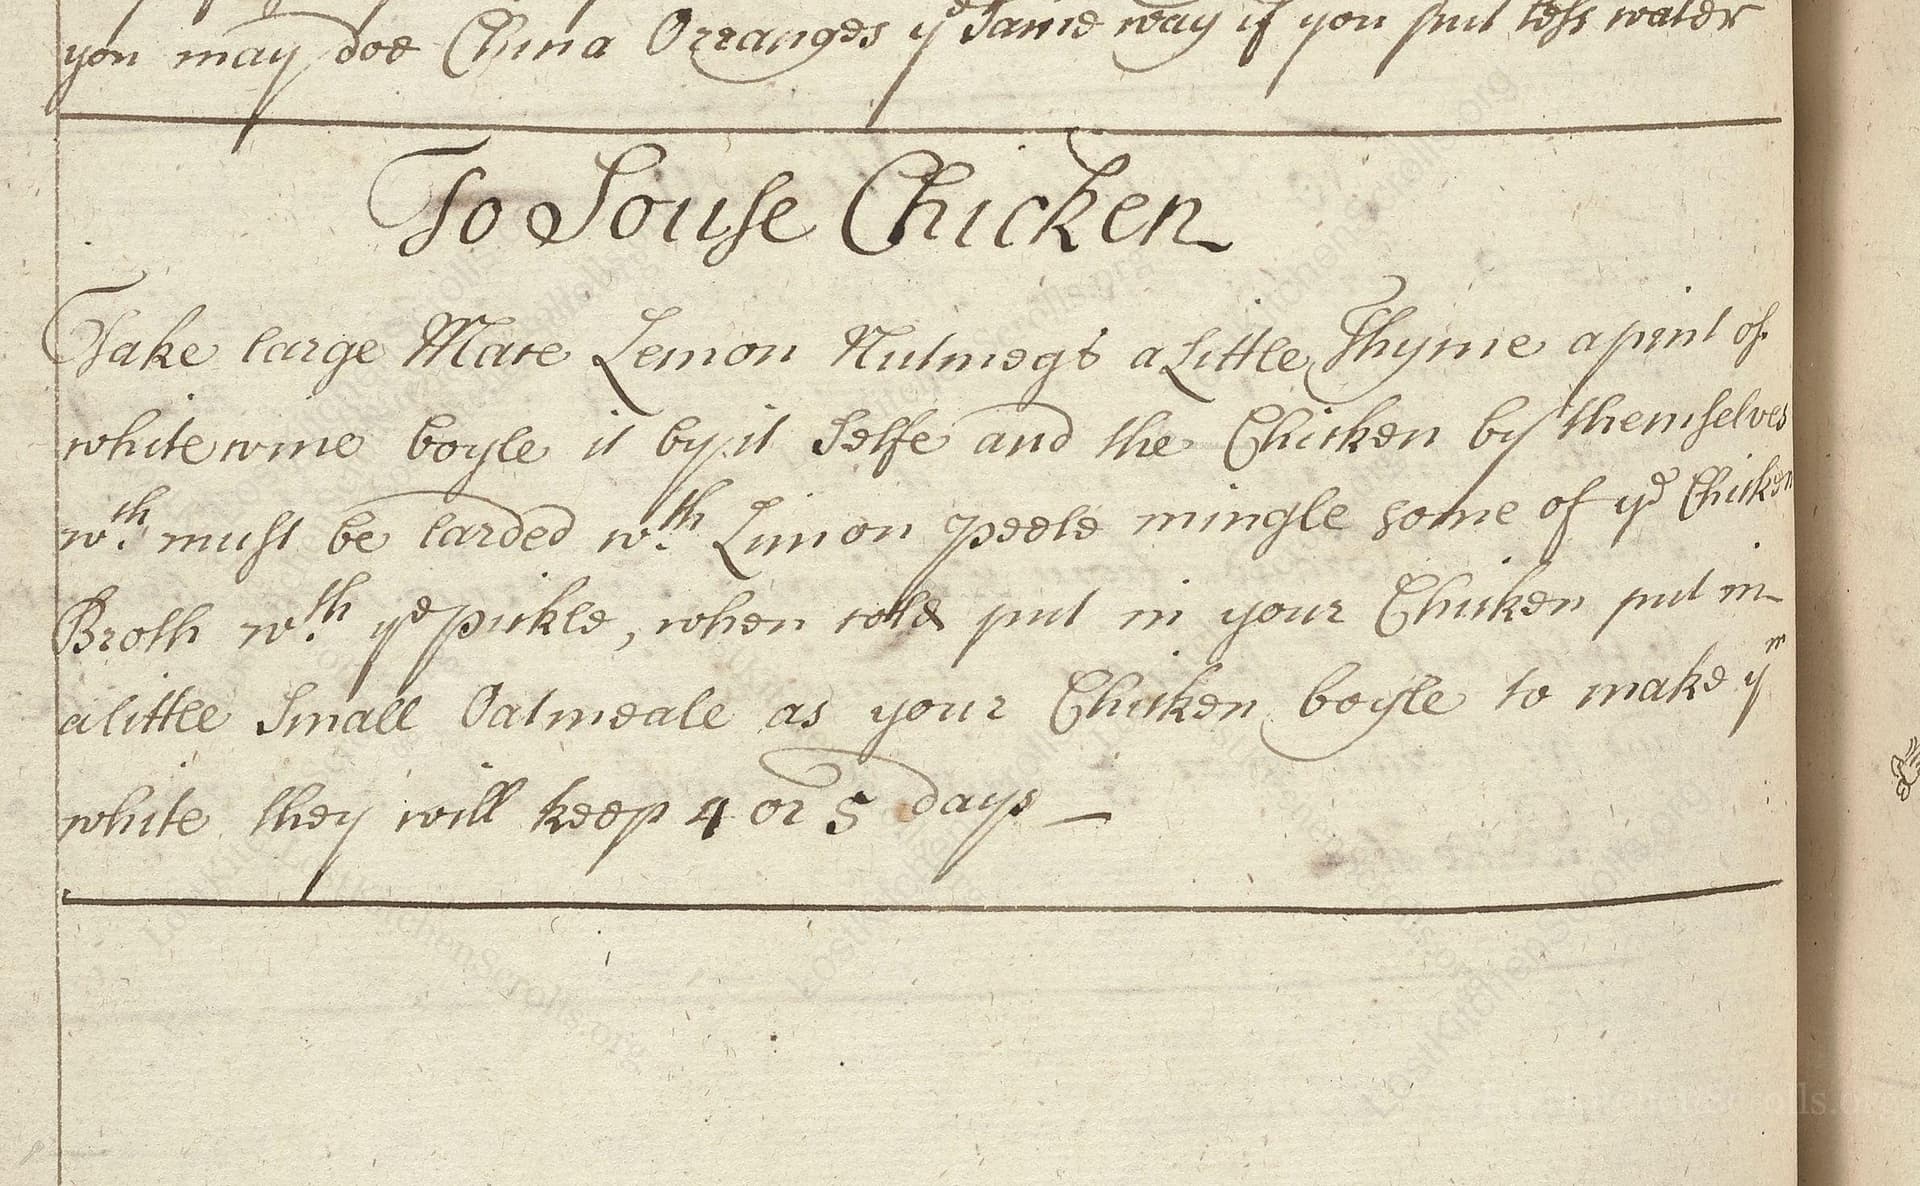 you may doe China Orranges yᵉ Same way if you put less water
To Souse Chicken
Take large Mace Lemon Nutmegs a Little Thyme a pint of
white wine boyle it by it Selfe and the Chicken by themselves
wᵗʰ must be larded wᵗʰ Limon peele mingle some of yᵉ Chicken
Broth wᵗʰ yᵉ pickle, when cold put in your Chicken put in
a little Small Oatmeale as your Chicken boyle to make yᵐ
white they will keep 4 or 5 days